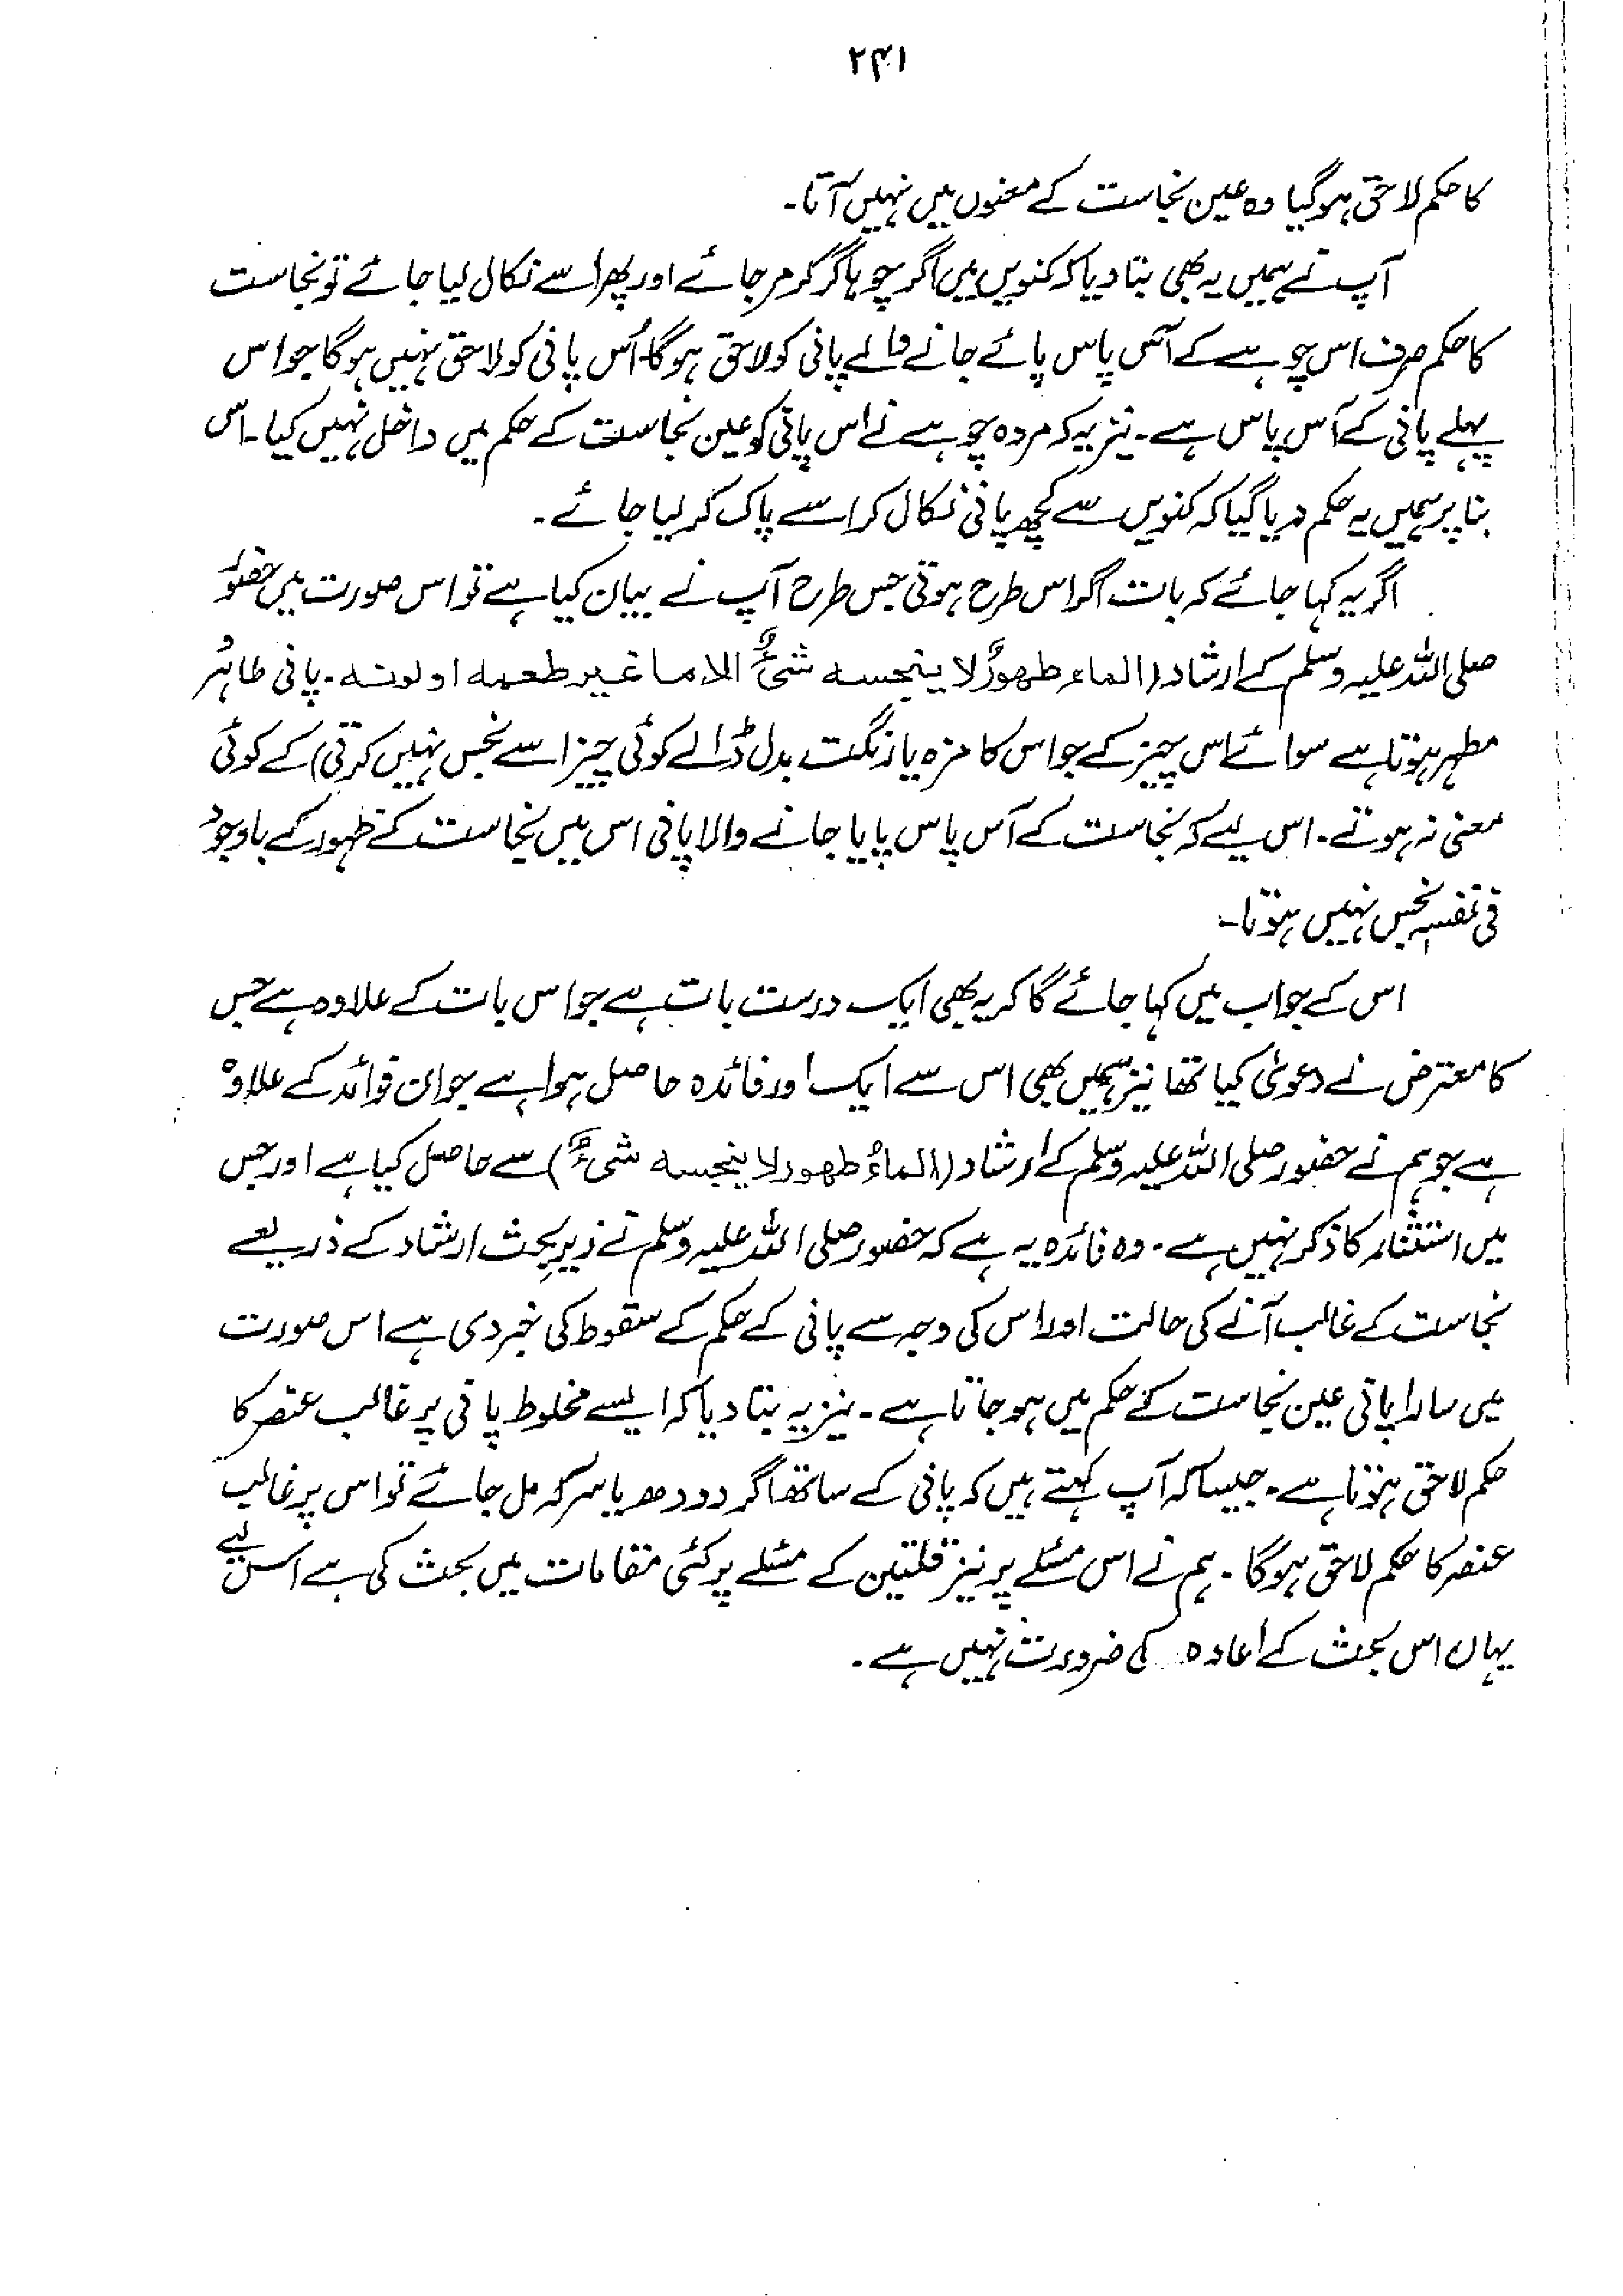 ۲۴۱
کا حکم لاحق ہوگیا وہ عین نجاست کے معنوں میں نہیں آتا۔
آپ نے ہمیں یہ بھی بتا دیا کہ کنویں میں اگر چوہا گر کر مر جائے اور پھر اسے نکال لیا جائے تو نجاست
کا حکم صرف اس چوہے کے آس پاس پائے جانے والے پانی کو لاحق ہوگا۔ اُس پانی کو لاحق نہیں ہوگا جو اس
پہلے پانی کے آس پاس ہے۔ نیز یہ کہ مردہ چوہے نے اس پانی کو عین نجاست کے حکم میں داخل نہیں کیا۔ اس
بنا پر ہمیں یہ حکم دیا گیا کہ کنویں سے کچھ پانی نکال کر اسے پاک کر لیا جائے۔
اگر یہ کہا جائے کہ بات اگر اس طرح ہوتی جس طرح آپ نے بیان کیا ہے تو اس صورت میں حضورؐ
صلی اللہ علیہ وسلم کے ارشاد (الماء طھورٌ لا ینجسه شیءٌ الا ما غیر طعمه او لونه۔ پانی طاہر و
مطہر ہوتا ہے سوائے اس چیز کے جو اس کا مزہ یا رنگت بدل ڈالے کوئی چیز اسے نجس نہیں کرتی) کے کوئی
معنی نہ ہوتے۔ اس لیے کہ نجاست کے آس پاس پایا جانے والا پانی اس میں نجاست کے ظہور کے باوجود
فی نفسہٖ نجس نہیں ہوتا۔
اس کے جواب میں کہا جائے گا کہ یہ بھی ایک درست بات ہے جو اس بات کے علاوہ ہے جس
کا معترض نے دعویٰ کیا تھا نیز ہمیں بھی اس سے ایک اور فائدہ حاصل ہوا ہے جو ان فوائد کے علاوہ
ہے جو ہم نے حضور صلی اللہ علیہ وسلم کے ارشاد (الماءُ طھور لا ینجسه شیءٌ) سے حاصل کیا ہے اور جس
میں استثناء کا ذکر نہیں ہے۔ وہ فائدہ یہ ہے کہ حضور صلی اللہ علیہ وسلم نے زیرِ بحث ارشاد کے ذریعے
نجاست کے غالب آنے کی حالت اور اس کی وجہ سے پانی کے حکم کے سقوط کی خبر دی ہے اس صورت
میں سارا پانی عین نجاست کے حکم میں ہو جاتا ہے۔ نیز یہ بتا دیا کہ ایسے مخلوط پانی پر غالب عنصر کا
حکم لاحق ہوتا ہے۔ جیسا کہ آپ کہتے ہیں کہ پانی کے ساتھ اگر دودھ یا سرکہ مل جائے تو اس پر غالب
عنصر کا حکم لاحق ہوگا۔ ہم نے اس مسئلے پر نیز قلتین کے مسئلے پر کئی مقامات میں بحث کی ہے اس لیے
یہاں اس بحث کے اعادہ کی ضرورت نہیں ہے۔